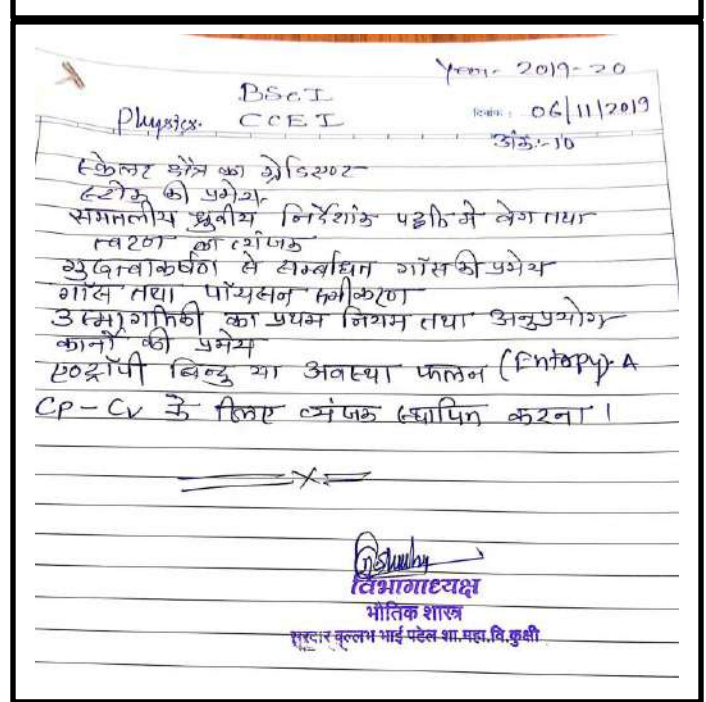 Year- 2019-20
BSc I
दिनांक: 06/11/2019
Physics. CCE I
अंक:-10
स्केलर क्षेत्र का ग्रेडिएण्ट
स्टोक की प्रमेय
समतलीय ध्रुवीय निर्देशांक पद्धति में वेग तथा
त्वरण का व्यंजक
गुरुत्वाकर्षण से सम्बंधित गॉस की प्रमेय
गॉस तथा पॉयसन समीकरण
उस्मागतिकी का प्रथम नियम तथा अनुप्रयोग
कार्नो की प्रमेय
एण्ट्रॉपी बिन्दु या अवस्था फलन (Entopy)- A
CP-Cv के लिए व्यंजक स्थापित करना।
विभागाध्यक्ष
भौतिक शास्त्र
सरदार वल्लभ भाई पटेल शा.महा.वि.कुक्षी